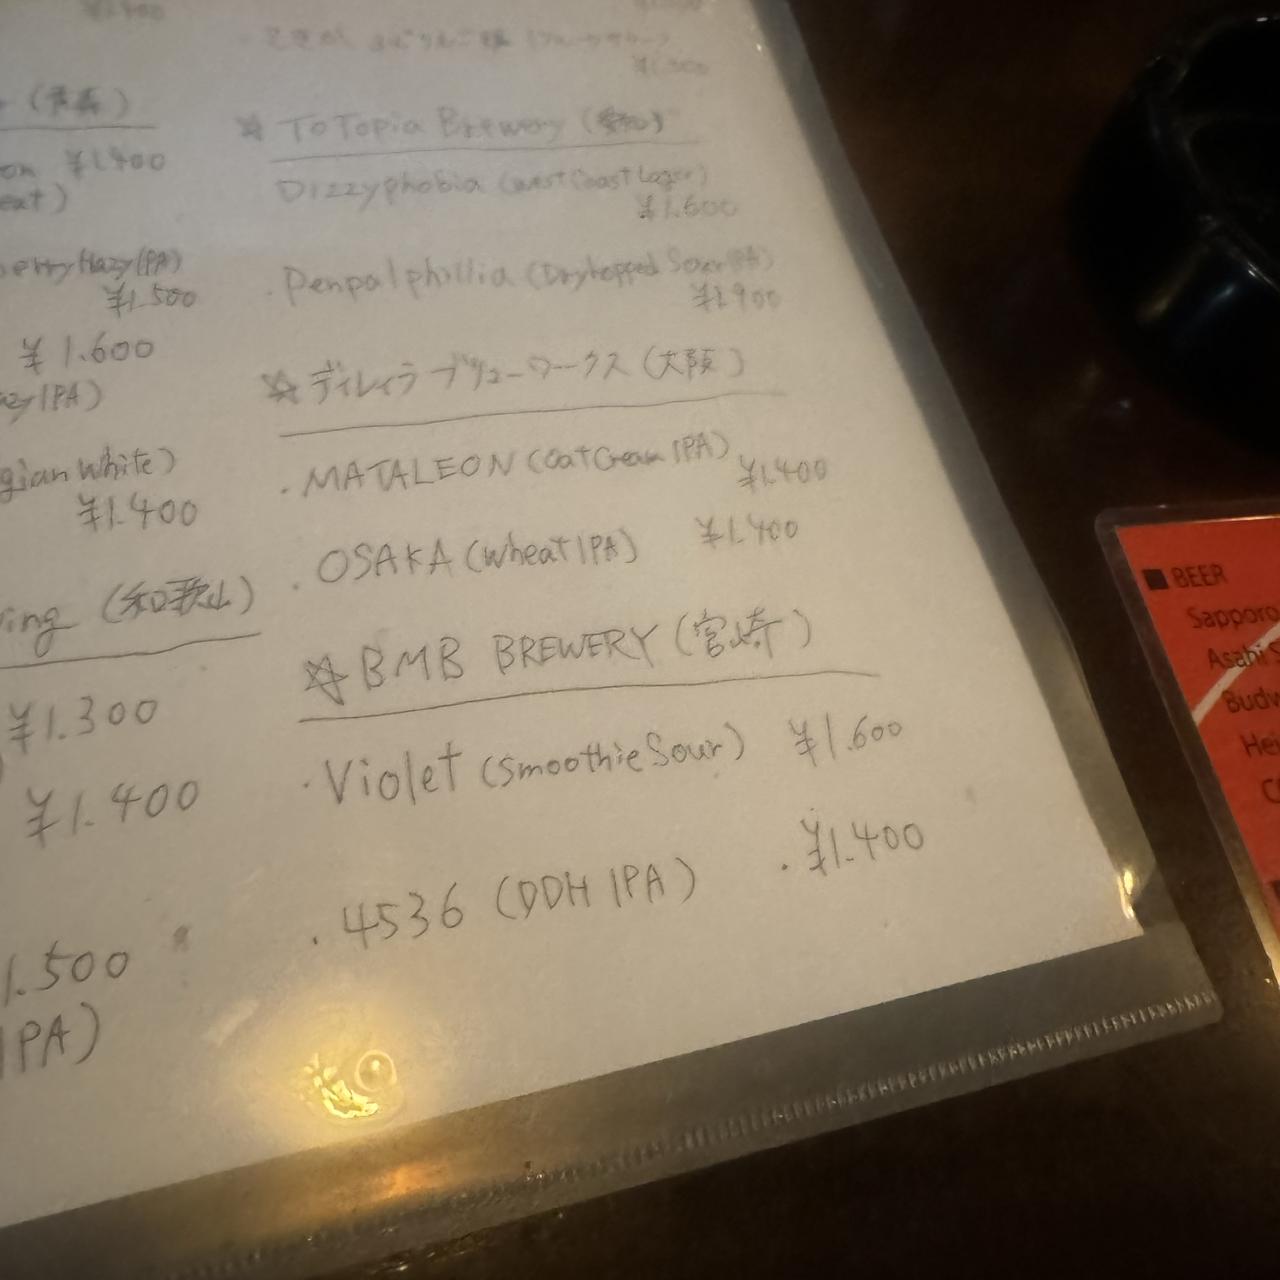 (青森)
on ¥1.400
eat)
berry Hazy IPA)
¥1.500
¥1.600
azy IPA)
gian White)
¥1.400
ving (和歌山)
¥1.300
¥1.400
1.500
IPA)
☆ ToTopia Brewery (愛知)
Dizzyphobia (west Coast Lager)
¥1.600
・Penpalphillia (Dryhopped Sour IPA)
☆ ディレイラブリューワークス (大阪)
・MATALEON (Oat Cream IPA)
¥1.400
・OSAKA (Wheat IPA) ¥1.400
☆ BMB BREWERY (宮崎)
・Violet (Smoothie Sour) ¥1.600
・4536 (DDH IPA) ・¥1.400
■ BEER
Sapporo
Asahi S
Budw
Hei